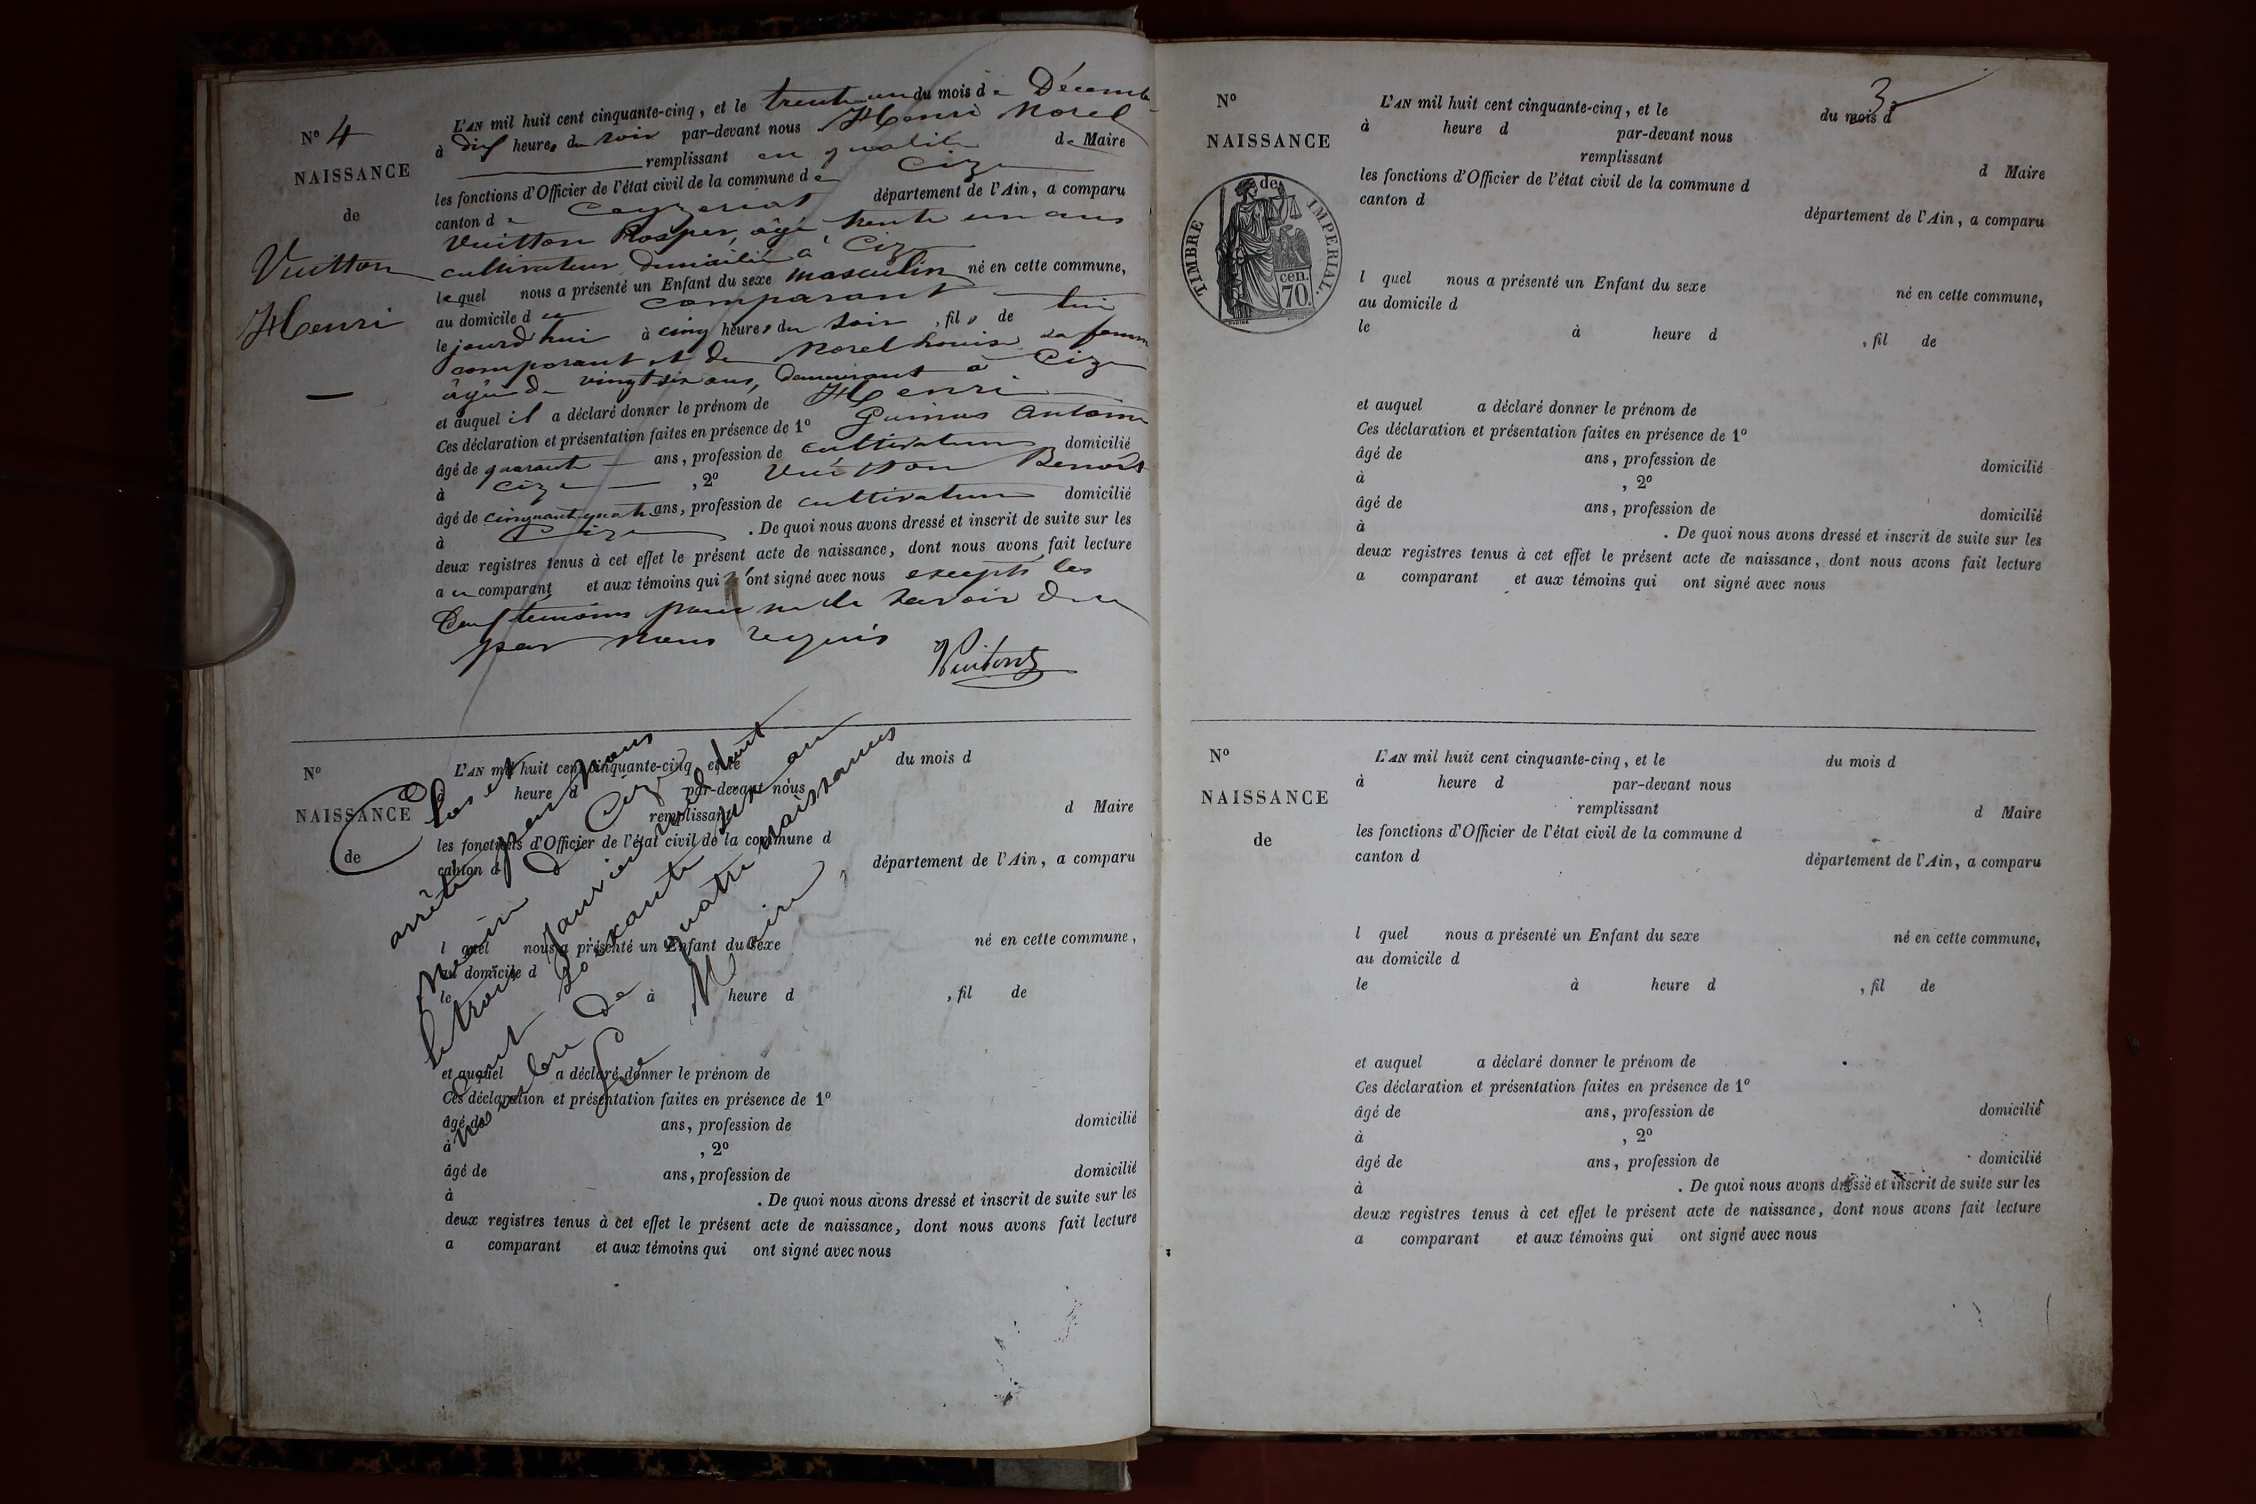 L'AN mil huit cent cinquante-cinq, et le trente un du mois de Décembre
N° 4
à dix heures du soir par-devant nous Henri Morel
remplissant en qualité de Maire
NAISSANCE
les fonctions d'Officier de l'état civil de la commune de Cize
canton de Ceyzeriat département de l'Ain, a comparu
de
Vuitton Prosper, âgé trente un ans
Vuitton
cultivateur domicilié à Cize
lequel nous a présenté un Enfant du sexe masculin né en cette commune,
Henri
au domicile du comparant
le jourd'hui à cinq heures du soir, fils de lui
comparant et de Morel Louise sa femme
âgée de vingt six ans, demeurant à Cize
et auquel il a déclaré donner le prénom de Henri
Ces déclaration et présentation faites en présence de 1° Guinus Antoine
âgé de quarante ans, profession de cultivateur domicilié
à Cize, 2° Vuitton Benoît
âgé de cinquante quatre ans, profession de cultivateur domicilié
à Cize. De quoi nous avons dressé et inscrit de suite sur les
deux registres tenus à cet effet le présent acte de naissance, dont nous avons fait lecture
au comparant et aux témoins qui ont signé avec nous excepté les
témoins pour ne le savoir de ce
par nous requis
Vuitton
N°
L'AN mil huit cent cinquante-cinq, et le du mois d
à heure d par-devant nous
NAISSANCE
remplissant d Maire
les fonctions d'Officier de l'état civil de la commune d
de
canton d département de l'Ain, a comparu
l quel nous a présenté un Enfant du sexe né en cette commune,
au domicile d
le à heure d , fil de
et auquel a déclaré donner le prénom de
Ces déclaration et présentation faites en présence de 1°
âgé de ans, profession de domicilié
à , 2°
âgé de ans, profession de domicilié
à . De quoi nous avons dressé et inscrit de suite sur les
deux registres tenus à cet effet le présent acte de naissance, dont nous avons fait lecture
a comparant et aux témoins qui ont signé avec nous
Clos et
arrêté par nous
Maire de Cize
le trois janvier mil huit
cent soixante six au
nombre de quatre naissances
Le Maire
3
N°
L'AN mil huit cent cinquante-cinq, et le du mois d
à heure d par-devant nous
NAISSANCE
remplissant d Maire
de
les fonctions d'Officier de l'état civil de la commune d
canton d département de l'Ain, a comparu
TIMBRE IMPERIAL.
cen.
70.
l quel nous a présenté un Enfant du sexe né en cette commune,
au domicile d
le à heure d , fil de
et auquel a déclaré donner le prénom de
Ces déclaration et présentation faites en présence de 1°
âgé de ans, profession de domicilié
à , 2°
âgé de ans, profession de domicilié
à . De quoi nous avons dressé et inscrit de suite sur les
deux registres tenus à cet effet le présent acte de naissance, dont nous avons fait lecture
a comparant et aux témoins qui ont signé avec nous
N°
L'AN mil huit cent cinquante-cinq, et le du mois d
à heure d par-devant nous
NAISSANCE
remplissant d Maire
les fonctions d'Officier de l'état civil de la commune d
de
canton d département de l'Ain, a comparu
l quel nous a présenté un Enfant du sexe né en cette commune,
au domicile d
le à heure d , fil de
et auquel a déclaré donner le prénom de
Ces déclaration et présentation faites en présence de 1°
âgé de ans, profession de domicilié
à , 2°
âgé de ans, profession de domicilié
à . De quoi nous avons dressé et inscrit de suite sur les
deux registres tenus à cet effet le présent acte de naissance, dont nous avons fait lecture
a comparant et aux témoins qui ont signé avec nous